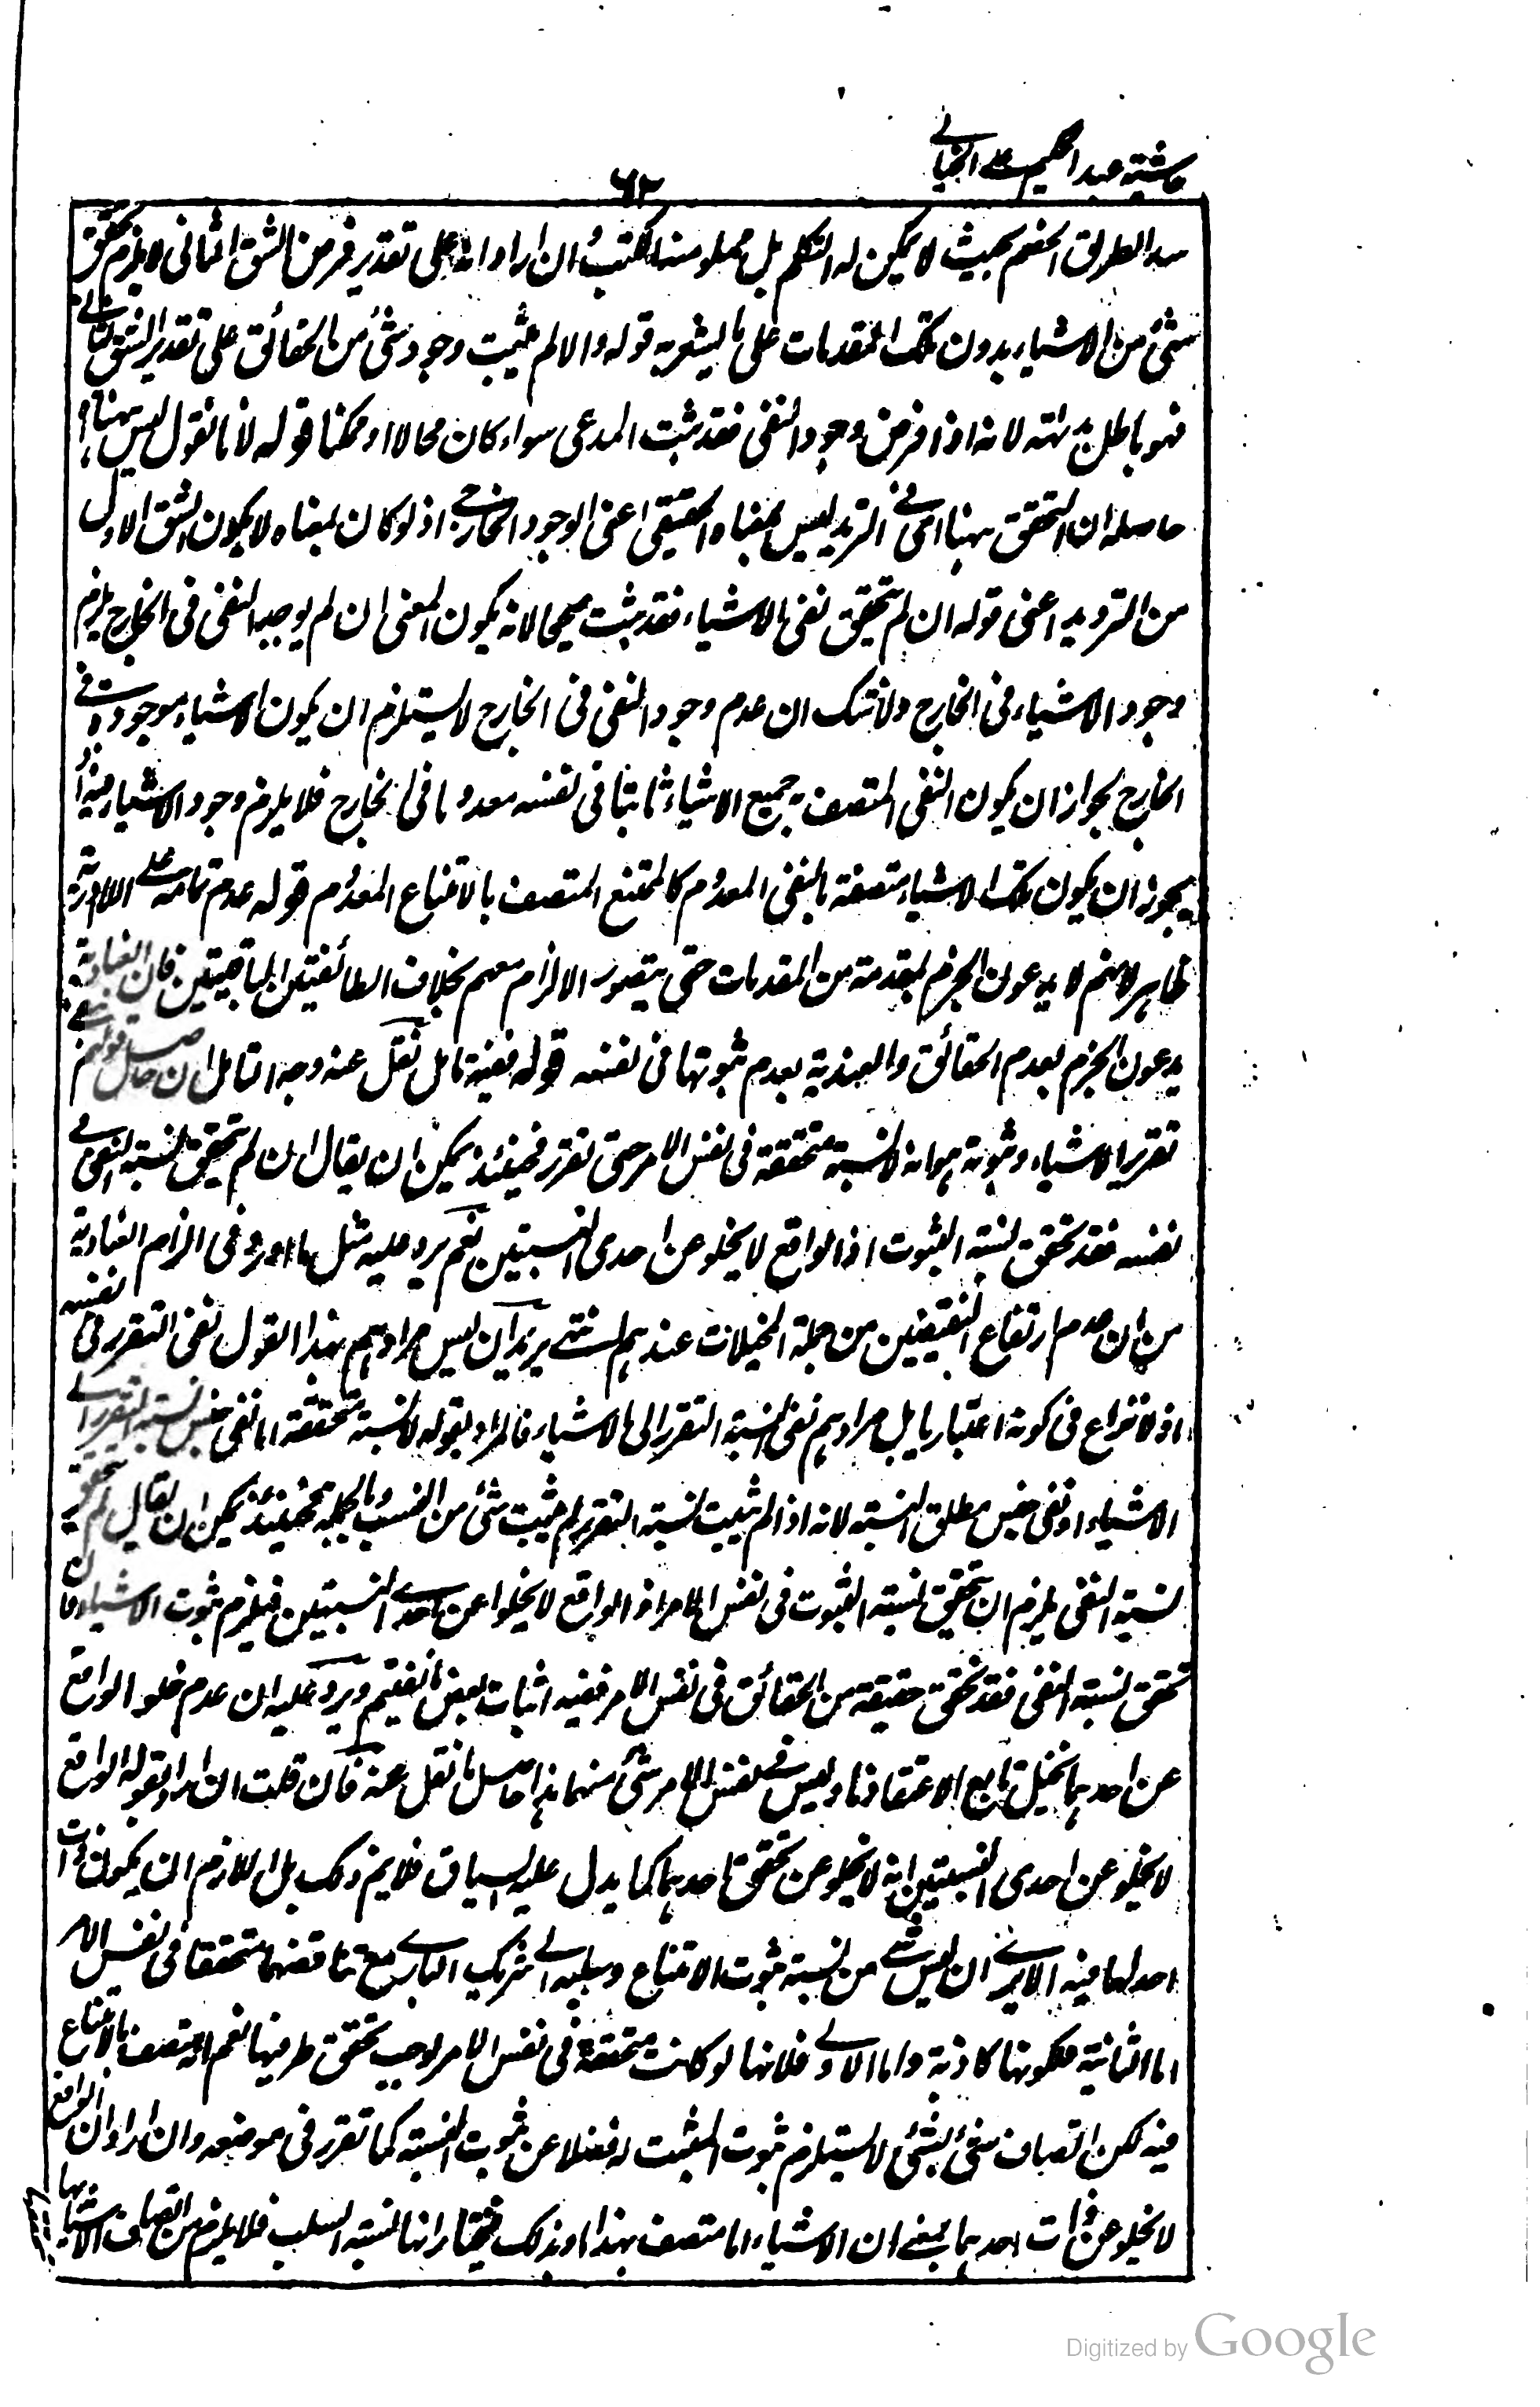 حاشيه عبد الحكيم على الخيالى
٦٢
سد الطريق الخصم بحيث لا يمكن له التكلم بل مملو منا لكتب ان اراد انه على تقدير فرض الشق الثانى لا يلزم تحقق
شئ من الاشياء بدون تلك المقدمات على ما يشعر به قوله والا لم يثبت وجود شئ من الحقائق على تقدير الشق الثانى
فهو باطل بديهته لانه اذا فرض وجود النفى فقد ثبت المدعى سواء كان محالا او ممكنا قوله لانا نقول ليس ههنا اه
حاصله ان التحقق ههنا اى فى الترديد ليس بمعناه الحقيقى اعنى الوجود الخارجى اذ لو كان بمعناه لا يكون الشق الاول
من الترديد اعنى قوله ان لم يتحقق نفى الاشياء فقد ثبت صحيحا لانه يكون المعنى ان لم يوجد النفى فى الخارج يلزم
وجود الاشياء فى الخارج ولا شك ان عدم وجود النفى فى الخارج لا يستلزم ان يكون الاشياء موجودة فى
الخارج لجواز ان يكون النفى المتصف به جميع الاشياء ثابتا فى نفسه معدوما فى الخارج فلا يلزم وجود الاشياء فيه اذ
يجوز ان يكون تلك الاشياء متصفة بالنفى المعدوم كالممتنع المتصف بالامتناع المعدوم قوله عدم تمامه على اللاادرية
ظاهر لانهم لا يدعون الجزم بمقدمة من المقدمات حتى يتصور الالزام معهم بخلاف الطائفتين الباقيتين فان العنادية
يدعون الجزم بعدم الحقائق والعندية بعدم ثبوتها فى نفسه قوله ففيه تامل نقل عنه وجه التامل ان حاصل قولهم فى
تقرير الاشياء وثبوته هو انه لا نسبة متحققة فى نفس الامر حتى تقرر فحينئذ يمكن ان يقال ان لم يتحقق نسبة النفى فى
نفسه فقد تحقق نسبة الثبوت اذ الواقع لا يخلو عن احدى النسبتين نعم يرد عليه مثل ما اورد فى الزام العنادية
من ان عدم ارتفاع النقيضين من جملة المخيلات عندهم انتهى يريد ان ليس مرادهم بهذا القول نفى التقرر فى نفسه
اذ لا نزاع فى كونه اعتباريا بل مرادهم نفى نسبة التقرر الى الاشياء فالمراد بقوله لا نسبة متحققة اما نفى جنس نسبة التقرر الى
الاشياء او نفى جنس مطلق النسبة لانه اذا لم يثبت نسبة التقرر لم يثبت شئ من النسب بالجملة فحينئذ يمكن ان يقال لم يتحقق
نسبة النفى يلزم ان يتحقق نسبة الثبوت فى نفس الامر اذ الواقع لا يخلوا عن احدى النسبتين فيلزم ثبوت الاشياء وان
تحقق نسبة النفى فقد تحقق حقيقة من الحقائق فى نفس الامر ففيه اثبات بعض ما نفيتم ويرد عليه ان عدم خلو الواقع
عن احدهما تخيل تابع لاعتقادنا وليس فى نفس الامر شئ منهما هذا حاصل ما نقل عنه فان قلت ان اراد بقوله الواقع
لا يخلو عن احدى النسبتين انه لا يخلو عن تحقق احدهما كما يدل عليه السياق فلا يتم ذلك بل اللازم ان يكون ذات
احدها فيه الا يرى ان ليس شئ من نسبة ثبوت الامتناع وسلبه الى شريك البارى مع تناقضهما متحققا فى نفس الامر
اما الثانية فلكونها كاذبة واما الاولى فلانها لو كانت متحققة فى نفس الامر لوجب تحقق طرفيها نعم انه متصف بالامتناع
فيه لكن اتصاف شئ بشئ لا يستلزم ثبوت المثبت له فضلا عن ثبوت النسبة كما تقرر فى موضعه وان اراد ان الواقع
لا يخلو عن ذات احدهما بمعنى ان الاشياء اما متصف بهذا او بذلك فيختار انها لنسبة السلب فلا يلزم من اتصاف الاشياء بها
Digitized by Google